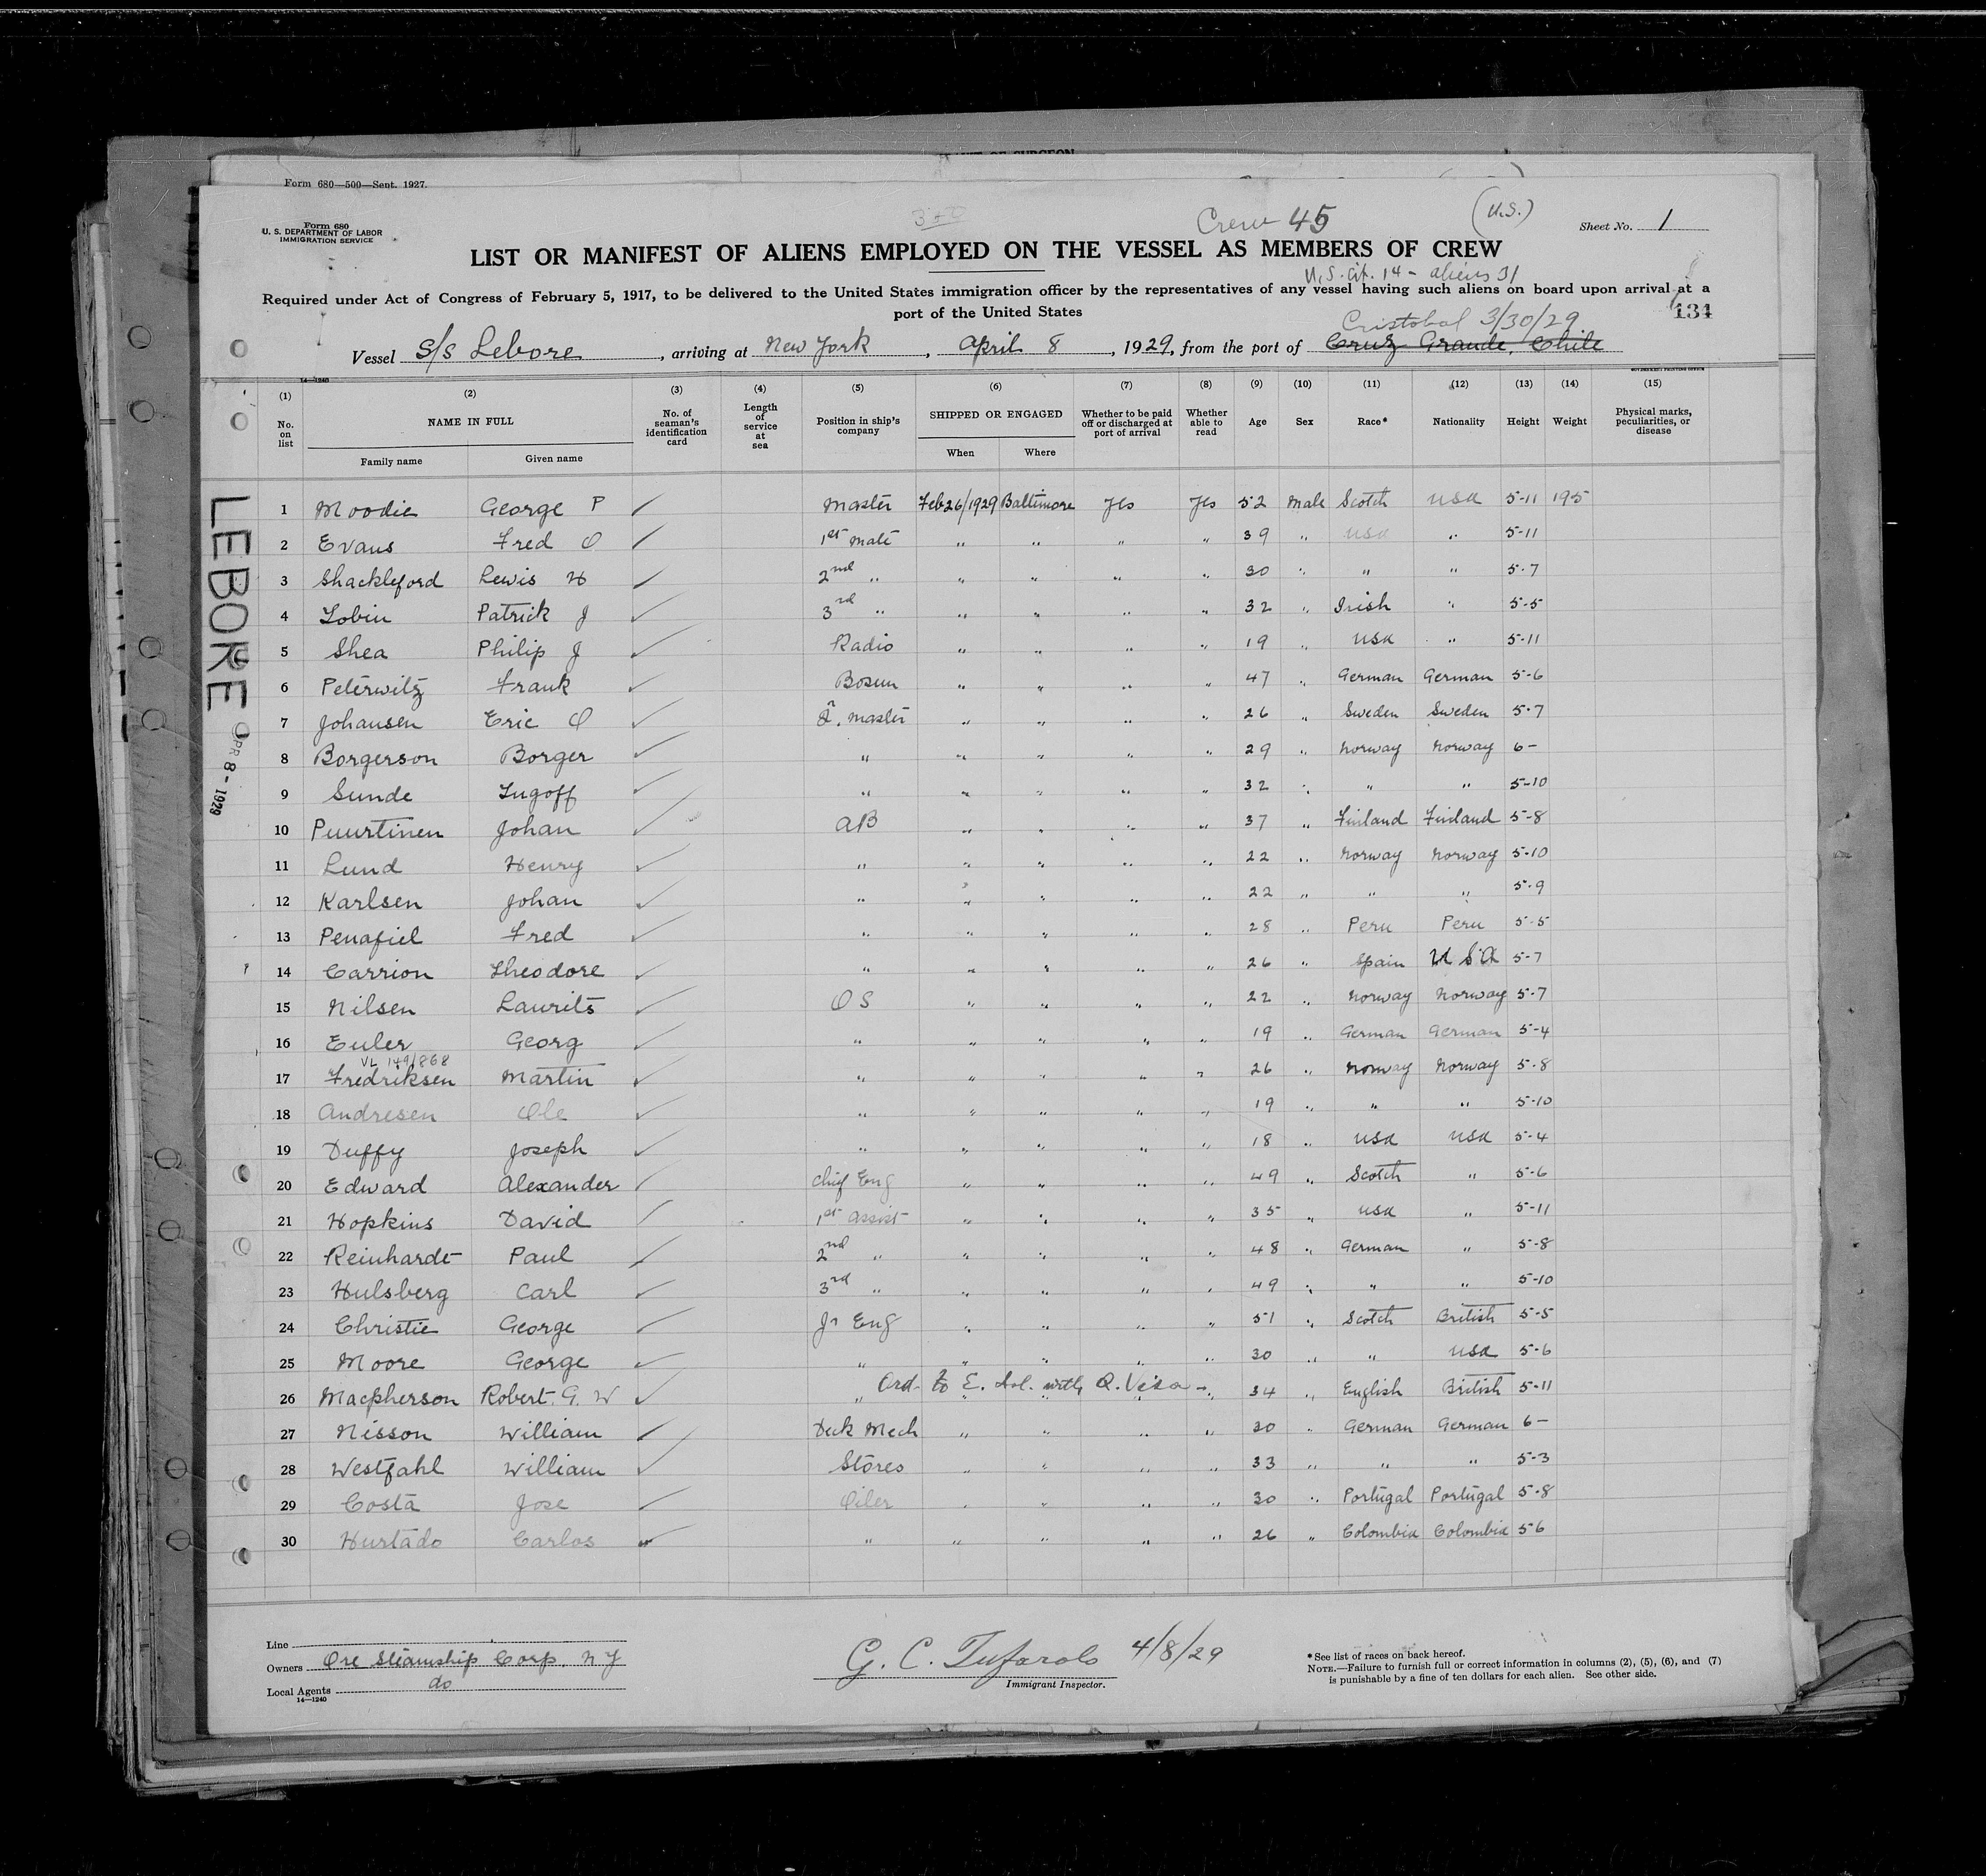 Form 680—500—Sept. 1927.
Form 680
U. S. DEPARTMENT OF LABOR
IMMIGRATION SERVICE
Crew 45
(U.S.)
Sheet No. 1
LIST OR MANIFEST OF ALIENS EMPLOYED ON THE VESSEL AS MEMBERS OF CREW
U.S. Cit. 14 - aliens 31
Required under Act of Congress of February 5, 1917, to be delivered to the United States immigration officer by the representatives of any vessel having such aliens on board upon arrival at a
port of the United States
134
Cristobal 3/30/29
Vessel S/S Lebore, arriving at New York, April 8, 1929, from the port of Cruz Grande, Chile
14—1240
GOVERNMENT PRINTING OFFICE
(1) (2) (3) (4) (5) (6) (7) (8) (9) (10) (11) (12) (13) (14) (15)
No. on list NAME IN FULL No. of seaman's identification card Length of service at sea Position in ship's company SHIPPED OR ENGAGED Whether to be paid off or discharged at port of arrival Whether able to read Age Sex Race* Nationality Height Weight Physical marks, peculiarities, or disease
Family name Given name When Where
LEBORE
APR 8 - 1929
1 Moodie George P ✓ Master Feb 26/1929 Baltimore Yes Yes 52 Male Scotch USA 5-11 195
2 Evans Fred O ✓ 1st Mate " " " " 39 " USA " 5-11
3 Shackleford Lewis H ✓ 2nd " " " " " 30 " " " 5-7
4 Tobin Patrick J ✓ 3rd " " " " " 32 " Irish " 5-5
5 Shea Philip J ✓ Radio " " " " 19 " USA " 5-11
6 Peterwitz Frank ✓ Bosun " " " " 47 " German German 5-6
7 Johansen Eric O ✓ Q. Master " " " " 26 " Sweden Sweden 5-7
8 Borgerson Borger ✓ " " " " " 29 " Norway Norway 6-
9 Sunde Ingoff ✓ " " " " " 32 " " " 5-10
10 Puurtinen Johan ✓ AB " " " " 37 " Finland Finland 5-8
11 Lund Henry ✓ " " " " " 22 " Norway Norway 5-10
12 Karlsen Johan ✓ " " " " " 22 " " " 5-9
13 Penafiel Fred ✓ " " " " " 28 " Peru Peru 5-5
14 Carrion Theodore ✓ " " " " " 26 " Spain USA 5-7
15 Nilsen Laurits ✓ OS " " " " 22 " Norway Norway 5-7
16 Euler Georg ✓ " " " " " 19 " German German 5-4
VL 149/868
17 Fredriksen Martin ✓ " " " " " 26 " Norway Norway 5-8
18 Andresen Ole ✓ " " " " " 19 " " " 5-10
19 Duffy Joseph ✓ " " " " " 18 " USA USA 5-4
20 Edward Alexander ✓ Chief Eng " " " " 49 " Scotch " 5-6
21 Hopkins David ✓ 1st Assist " " " " 35 " USA " 5-11
22 Reinhardt Paul ✓ 2nd " " " " " 48 " German " 5-8
23 Hulsberg Carl ✓ 3rd " " " " " 49 " " " 5-10
24 Christie George ✓ Jr Eng " " " " 51 " Scotch British 5-5
25 Moore George ✓ " " " " " 30 " " USA 5-6
26 Macpherson Robert. G. W ✓ " Ord. to E. Isl. with Q. Visa - " 34 " English British 5-11
27 Nisson William ✓ Deck Mech " " " " 30 " German German 6-
28 Westfahl William ✓ Stores " " " " 33 " " " 5-3
29 Costa Jose ✓ Oiler " " " " 30 " Portugal Portugal 5-8
30 Hurtado Carlos ✓ " " " " " 26 " Colombia Colombia 56
Line
Owners Ore Steamship Corp. N Y
Local Agents do
14—1240
G. C. Tufarolo 4/8/29
Immigrant Inspector.
*See list of races on back hereof.
NOTE.—Failure to furnish full or correct information in columns (2), (5), (6), and (7)
is punishable by a fine of ten dollars for each alien. See other side.